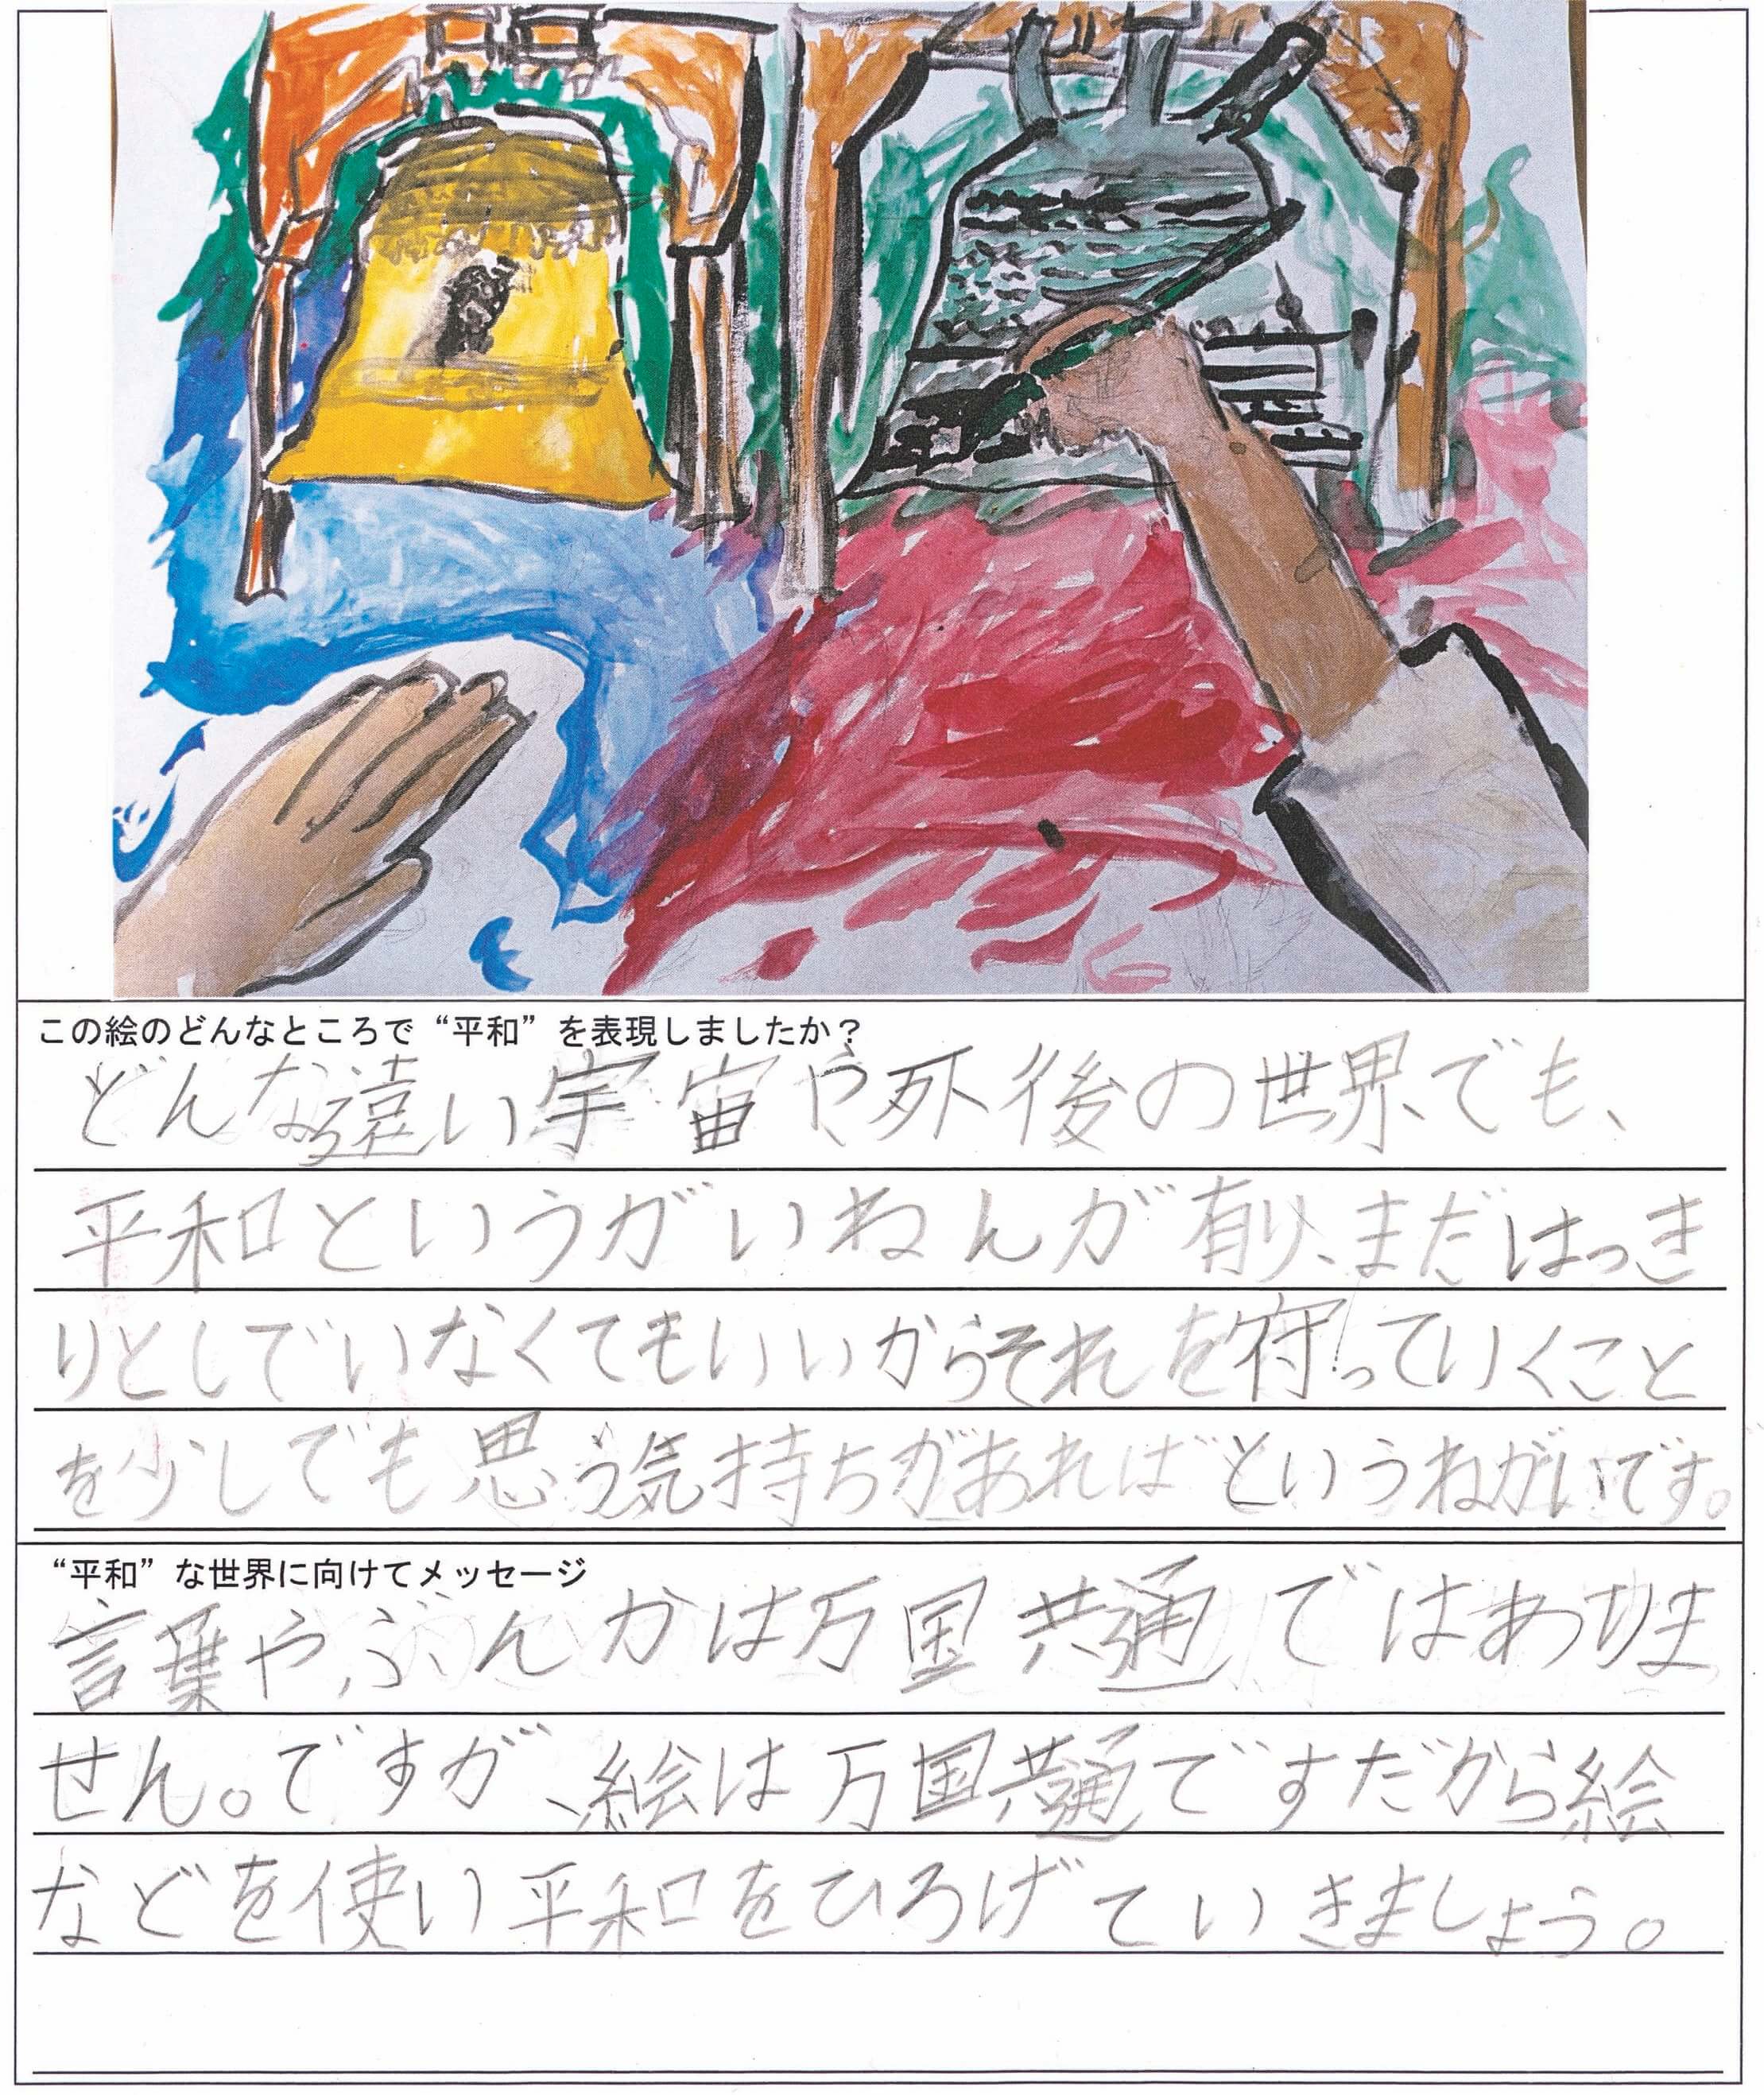 この絵のどんなところで“平和”を表現しましたか？
どんな遠い宇宙や死後の世界でも、
平和というがいねんが有り、まだはっき
りとしでいなくてもいいからそれを守っていくこと
を少しでも思う気持ちがあればというねがいです。
“平和”な世界に向けてメッセージ
言葉やぶんかは万国共通ではありま
せん。ですが、絵は万国共通ですだから絵
などを使い平和をひろげていきましょう。